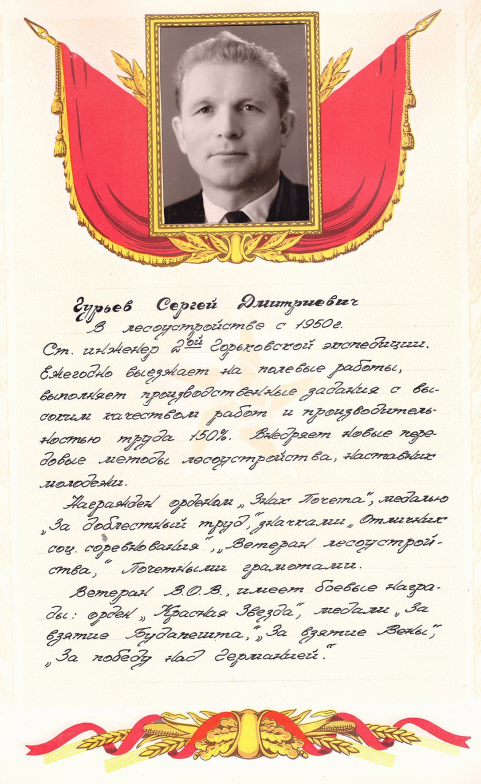 Гурьев Сергей Дмитриевич
В лесоустройстве с 1950г.
Ст. инженер 2ой Горьковской экспедиции.
Ежегодно выезжает на полевые работы,
выполняет производственные задания с вы-
соким качеством работ и производитель-
ностью труда 150%. Внедряет новые пере-
довые методы лесоустройства, наставник
молодежи.
Награжден орденом „Знак Почета", медалью
„За доблестный труд", значками „Отличник
соц. соревнования", „Ветеран лесоустрой-
ства", Почетными грамотами.
Ветеран В.О.В., имеет боевые награ-
ды: орден „Красная Звезда", медали „За
взятие Будапешта", „За взятие Вены",
„За победу над Германией".